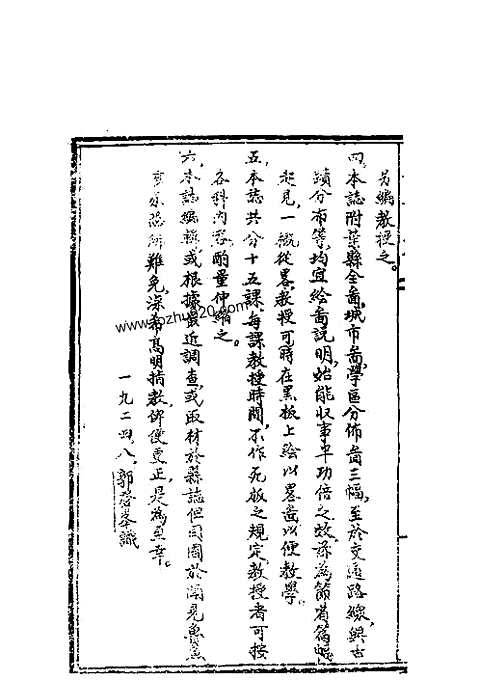 另編教授之。
四、本誌附葉縣全啚,城市啚,學區分佈啚三幅,至於交通路線,與古
蹟分布等,均宜繪啚説明,始能收事半功倍之效,茲為節省篇幅
起見,一概從畧,教授可時在黑板上繪以畧啚以便教學。
五、本誌共分十五課每課教授時間,不作死版之規定,教授者可按
各科內容,酌量伸縮之。
六、本誌編輯,或根據最近調查,或取材於縣誌但囿於聞見魯魚
亥豕恐難免深希高明指教俾便更正,是為更幸。
一九二四、八、郭 識
www.aozhu20.com